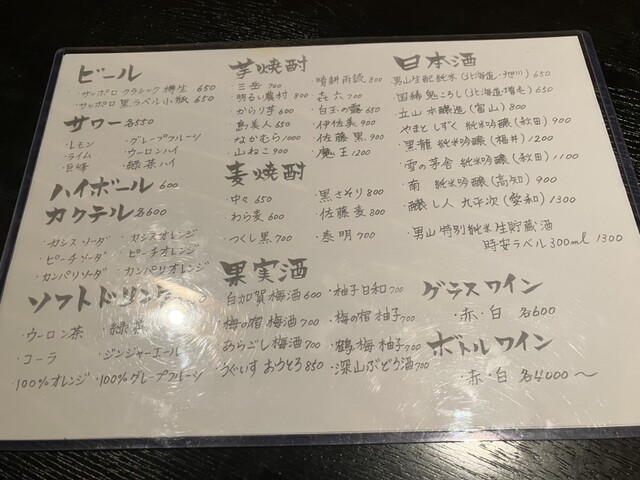 ビール
・サッポロ クラシック 樽生 650
・サッポロ 黒ラベル小瓶 650
サワー 各550
・レモン ・グレープフルーツ
・ライム ・ウーロンハイ
・巨峰 ・緑茶ハイ
ハイボール 600
カクテル 各600
・カシスソーダ ・カシスオレンジ
・ピーチソーダ ・ピーチオレンジ
・カンパリソーダ ・カンパリオレンジ
ソフトドリンク
・ウーロン茶 ・緑茶
・コーラ ・ジンジャーエール
・100%オレンジ ・100%グレープフルーツ
芋焼酎
・三岳 700 ・晴耕雨読 800
・明るい農村 800 ・㐂六 700
・からり芋 600 ・白玉の露 650
・島美人 650 ・伊佐美 900
・なかむら 1000 ・佐藤 黒 900
・山ねこ 900 ・魔王 1200
麦焼酎
・中々 650 ・黒さそり 800
・わら麦 600 ・佐藤 麦 800
・つくし黒 700 ・泰明 700
果実酒
・白加賀 梅酒 600 ・柚子日和 700
・梅の宿 梅酒 700 ・梅の宿 柚子 700
・あらごし梅酒 700 ・鶴梅 柚子 700
・うぐいす おうとろ 850 ・深山ぶどう酒 700
日本酒
・男山 生酛純米 (北海道・旭川) 650
・国稀 鬼ころし (北海道・増毛) 650
・立山 本醸造 (富山) 800
・やまとしずく 純米吟醸 (秋田) 900
・黒龍 純米吟醸 (福井) 1200
・雪の茅舎 純米吟醸 (秋田) 1100
・南 純米吟醸 (高知) 900
・醸し人 九平次 (愛知) 1300
・男山 特別純米 生貯蔵酒
時安ラベル 300ml 1300
グラスワイン
・赤・白 各600
ボトルワイン
・赤・白 各4000〜